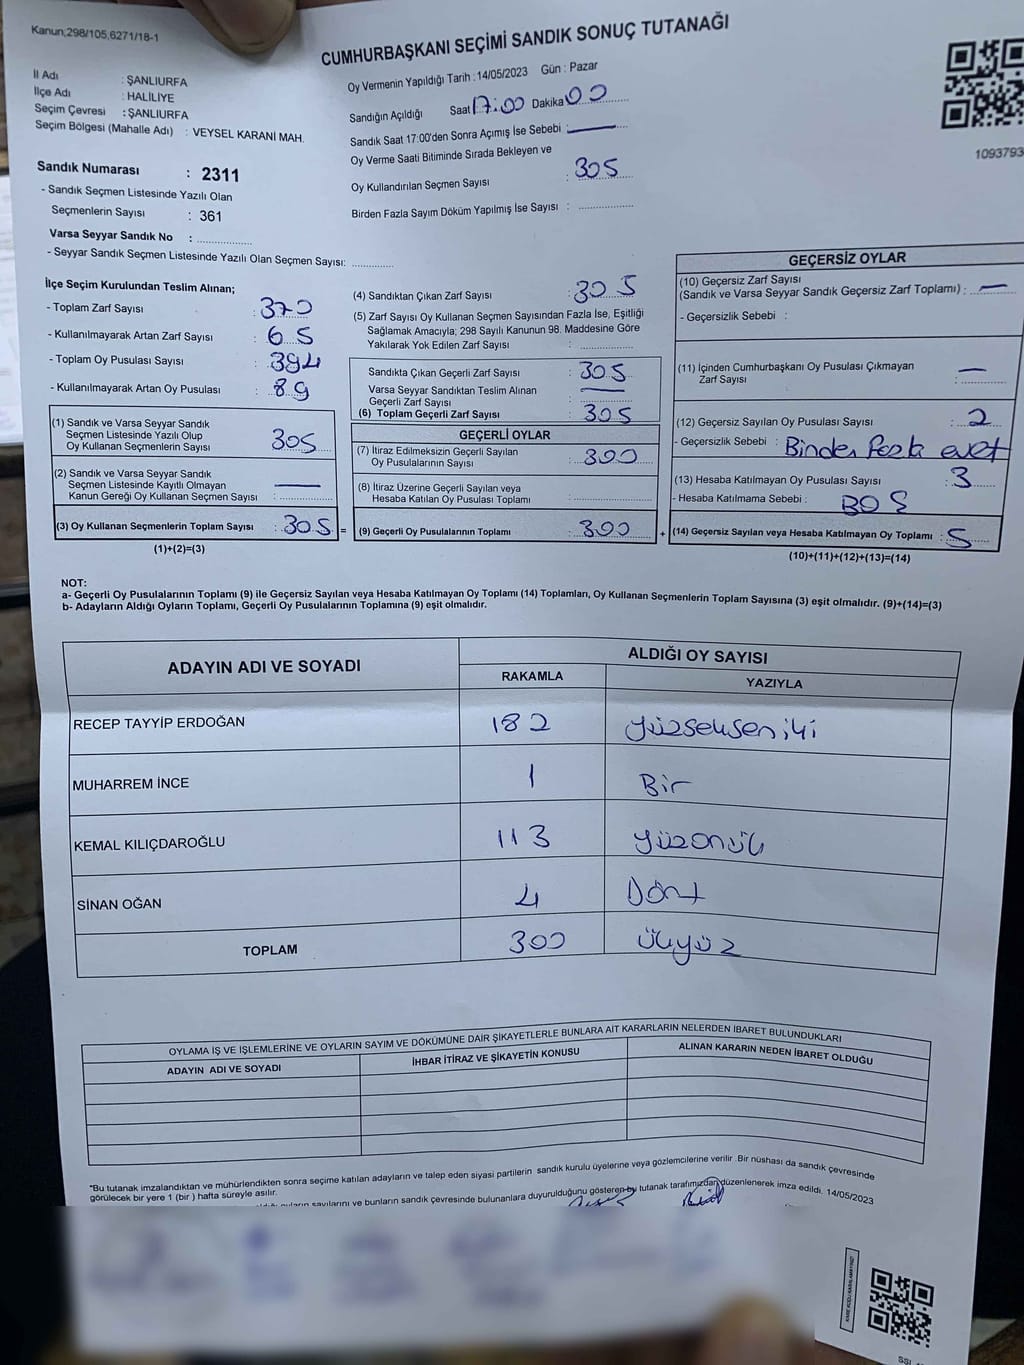 Kanun;298/105;6271/18-1
CUMHURBAŞKANI SEÇİMİ SANDIK SONUÇ TUTANAĞI
İl Adı : ŞANLIURFA
İlçe Adı : HALİLİYE
Seçim Çevresi : ŞANLIURFA
Seçim Bölgesi (Mahalle Adı) : VEYSEL KARANİ MAH.
Oy Vermenin Yapıldığı Tarih : 14/05/2023 Gün : Pazar
Sandığın Açıldığı Saat 17:00 Dakika 00
Sandık Saat 17:00'den Sonra Açımış İse Sebebi :
Oy Verme Saati Bitiminde Sırada Bekleyen ve
Oy Kullandırılan Seçmen Sayısı : 305
Birden Fazla Sayım Döküm Yapılmış İse Sayısı :
1093793
Sandık Numarası : 2311
- Sandık Seçmen Listesinde Yazılı Olan
Seçmenlerin Sayısı : 361
Varsa Seyyar Sandık No :
- Seyyar Sandık Seçmen Listesinde Yazılı Olan Seçmen Sayısı:
İlçe Seçim Kurulundan Teslim Alınan;
- Toplam Zarf Sayısı : 370
- Kullanılmayarak Artan Zarf Sayısı : 65
- Toplam Oy Pusulası Sayısı : 394
- Kullanılmayarak Artan Oy Pusulası : 89
(1) Sandık ve Varsa Seyyar Sandık
Seçmen Listesinde Yazılı Olup
Oy Kullanan Seçmenlerin Sayısı : 305
(2) Sandık ve Varsa Seyyar Sandık
Seçmen Listesinde Kayıtlı Olmayan
Kanun Gereği Oy Kullanan Seçmen Sayısı :
(3) Oy Kullanan Seçmenlerin Toplam Sayısı : 305 =
(1)+(2)=(3)
(4) Sandıktan Çıkan Zarf Sayısı : 305
(5) Zarf Sayısı Oy Kullanan Seçmen Sayısından Fazla İse, Eşitliği
Sağlamak Amacıyla; 298 Sayılı Kanunun 98. Maddesine Göre
Yakılarak Yok Edilen Zarf Sayısı :
Sandıkta Çıkan Geçerli Zarf Sayısı : 305
Varsa Seyyar Sandıktan Teslim Alınan
Geçerli Zarf Sayısı :
(6) Toplam Geçerli Zarf Sayısı : 305
GEÇERLİ OYLAR
(7) İtiraz Edilmeksizin Geçerli Sayılan
Oy Pusulalarının Sayısı : 300
(8) İtiraz Üzerine Geçerli Sayılan veya
Hesaba Katılan Oy Pusulası Toplamı :
(9) Geçerli Oy Pusulalarının Toplamı : 300 +
GEÇERSİZ OYLAR
(10) Geçersiz Zarf Sayısı
(Sandık ve Varsa Seyyar Sandık Geçersiz Zarf Toplamı) : —
- Geçersizlik Sebebi :
(11) İçinden Cumhurbaşkanı Oy Pusulası Çıkmayan
Zarf Sayısı : —
(12) Geçersiz Sayılan Oy Pusulası Sayısı : 2
- Geçersizlik Sebebi : Birden Fazla evet
(13) Hesaba Katılmayan Oy Pusulası Sayısı : 3
- Hesaba Katılmama Sebebi : BOŞ
(14) Geçersiz Sayılan veya Hesaba Katılmayan Oy Toplamı : 5
(10)+(11)+(12)+(13)=(14)
NOT:
a- Geçerli Oy Pusulalarının Toplamı (9) ile Geçersiz Sayılan veya Hesaba Katılmayan Oy Toplamı (14) Toplamları, Oy Kullanan Seçmenlerin Toplam Sayısına (3) eşit olmalıdır. (9)+(14)=(3)
b- Adayların Aldığı Oyların Toplamı, Geçerli Oy Pusulalarının Toplamına (9) eşit olmalıdır.
ADAYIN ADI VE SOYADI ALDIĞI OY SAYISI
RAKAMLA YAZIYLA
RECEP TAYYİP ERDOĞAN 182 yüzseksen iki
MUHARREM İNCE 1 Bir
KEMAL KILIÇDAROĞLU 113 yüzonüç
SİNAN OĞAN 4 Dört
TOPLAM 300 üçyüz
OYLAMA İŞ VE İŞLEMLERİNE VE OYLARIN SAYIM VE DÖKÜMÜNE DAİR ŞİKAYETLERLE BUNLARA AİT KARARLARIN NELERDEN İBARET BULUNDUKLARI
ADAYIN ADI VE SOYADI İHBAR İTİRAZ VE ŞİKAYETİN KONUSU ALINAN KARARIN NEDEN İBARET OLDUĞU
*Bu tutanak imzalandıktan ve mühürlendikten sonra seçime katılan adayların ve talep eden siyasi partilerin sandık kurulu üyelerine veya gözlemcilerine verilir .Bir nüshası da sandık çevresinde
görülecek bir yere 1 (bir ) hafta süreyle asılır.
sayılarını ve bunların sandık çevresinde bulunanlara duyurulduğunu gösteren bu tutanak tarafımızdan düzenlenerek imza edildi. 14/05/2023